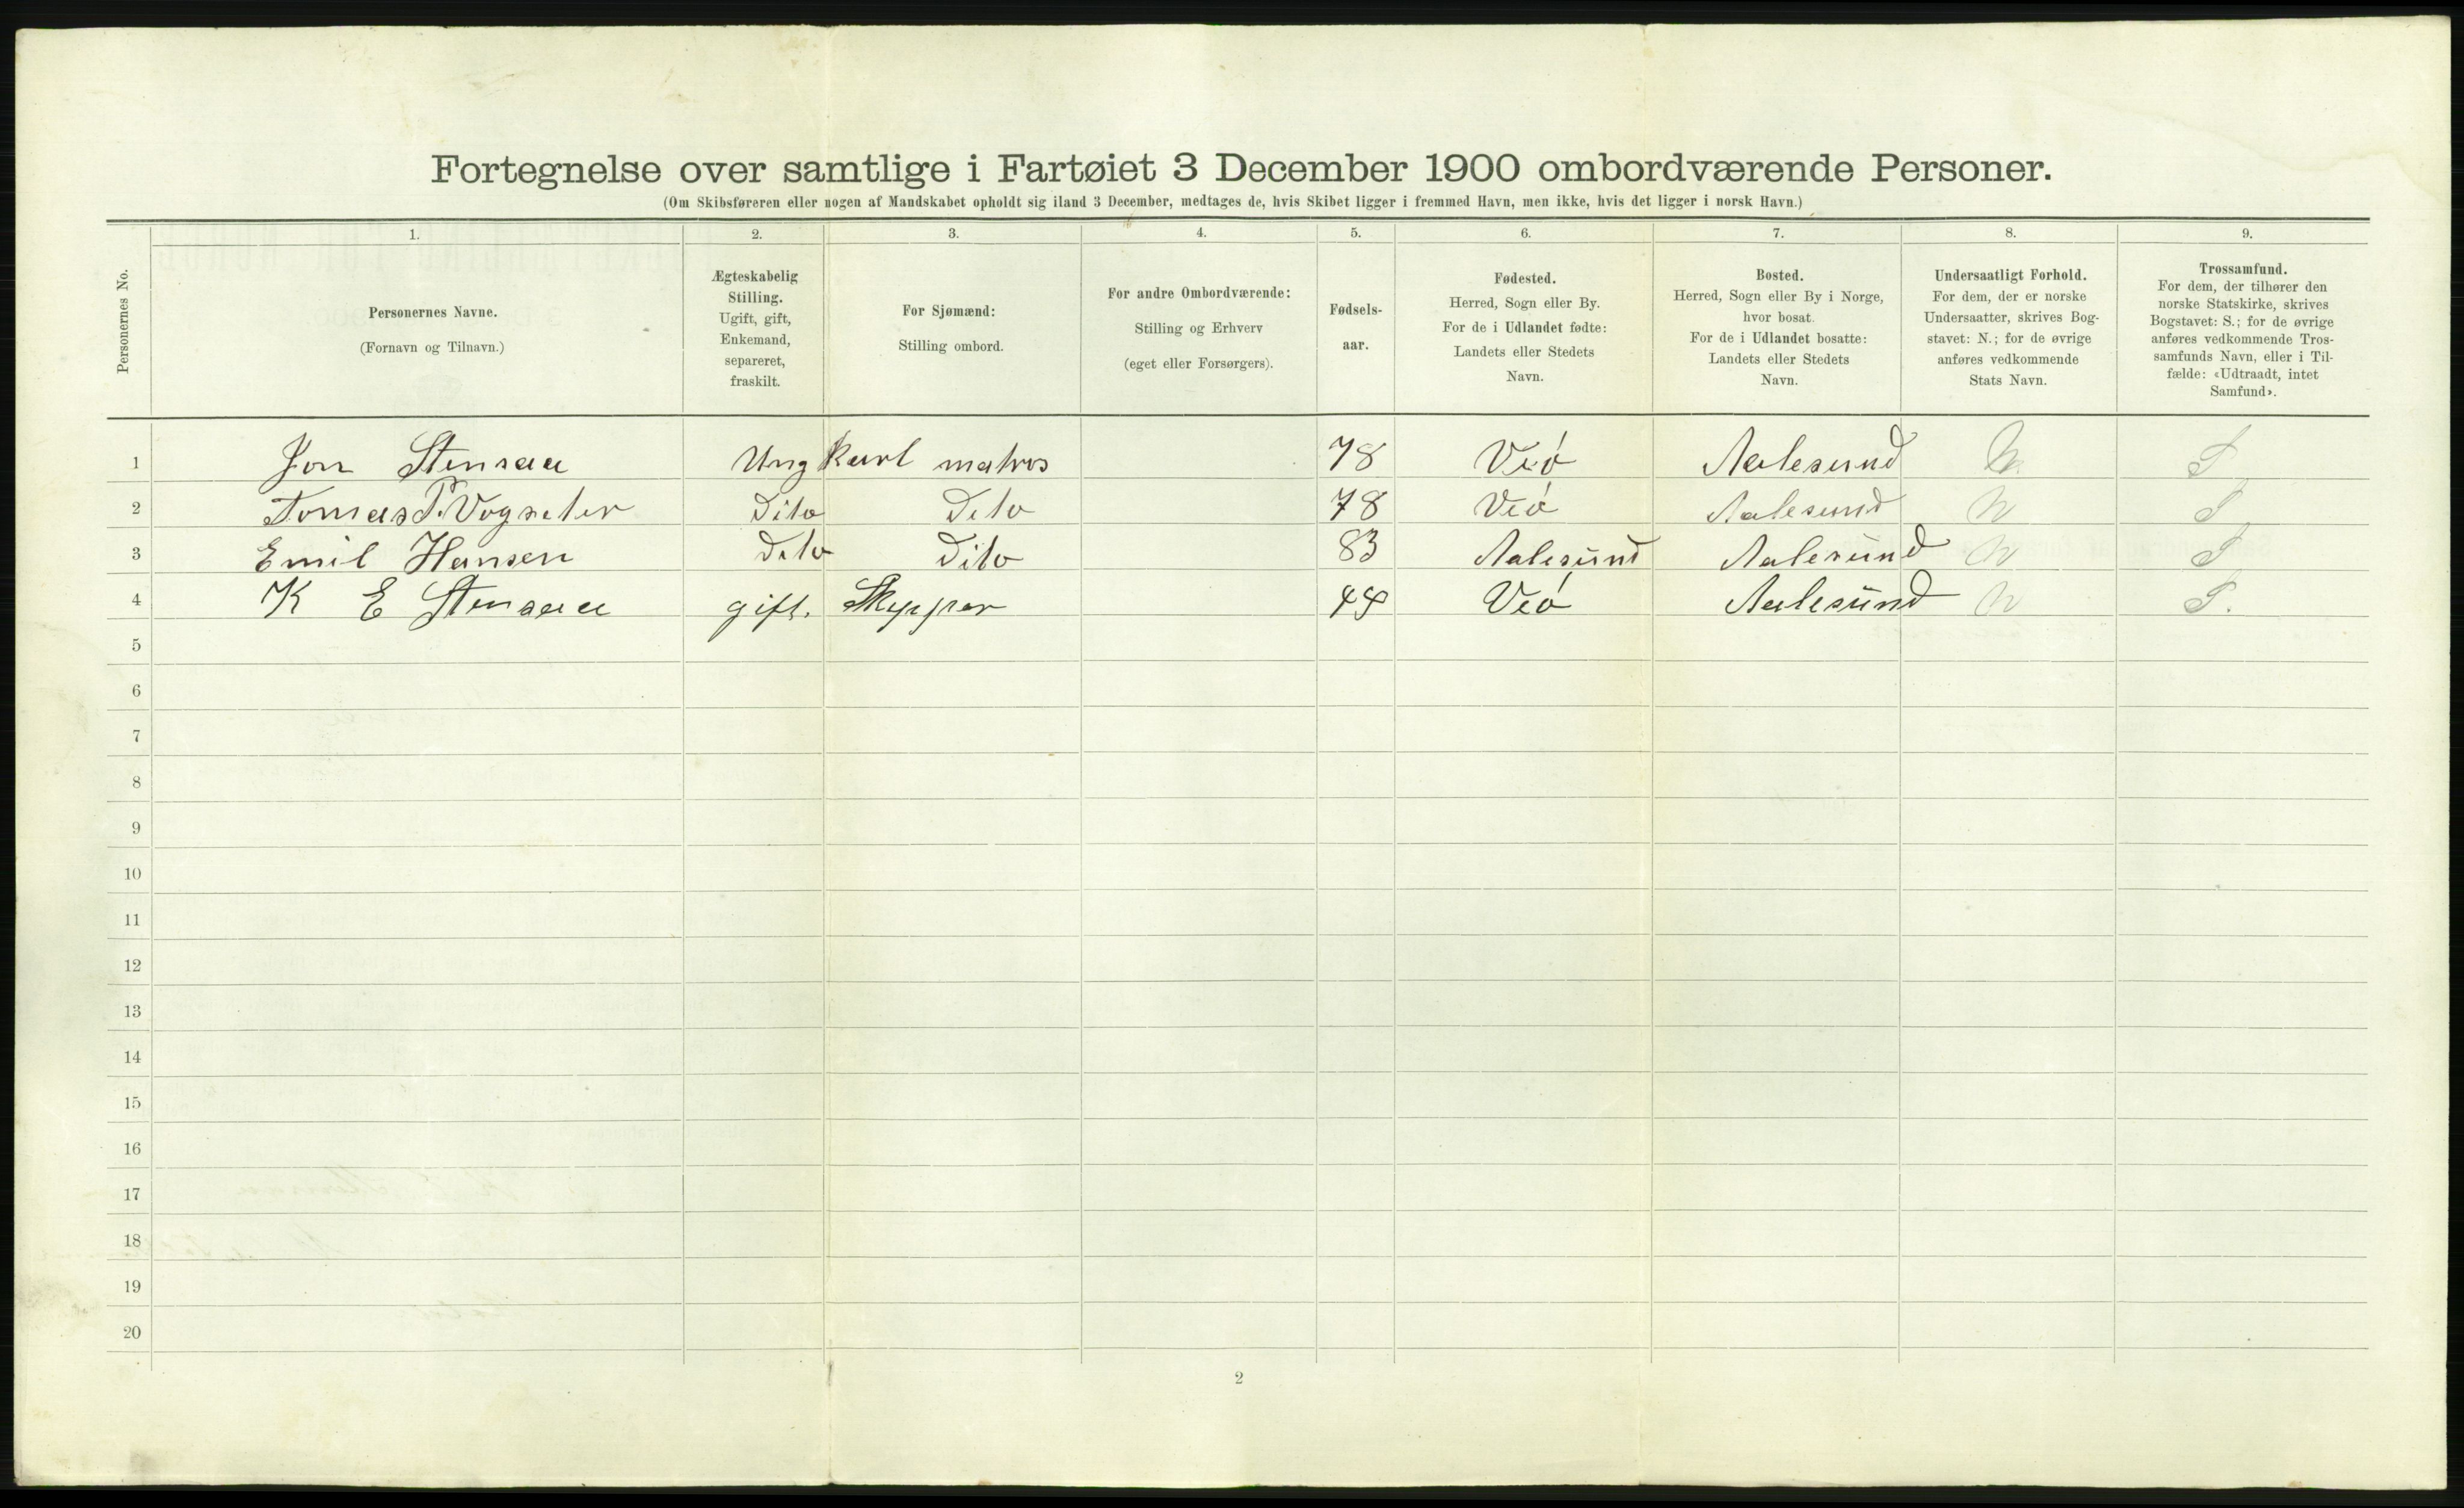 Fortegnelse over samtlige i Fartøiet 3 December 1900 ombordværende Personer.
(Om Skibsføreren eller nogen af Mandskabet opholdt sig iland 3 December, medtages de, hvis Skibet ligger i fremmed Havn, men ikke, hvis det ligger i norsk Havn.)
Personernes No.
1. 2. 3. 4. 5. 6. 7. 8. 9.
Personernes Navne.
(Fornavn og Tilnavn.)
Ægteskabelig
Stilling.
Ugift, gift,
Enkemand,
separeret,
fraskilt.
For Sjømænd:
Stilling ombord.
For andre Ombordværende:
Stilling og Erhverv
(eget eller Forsørgers).
Fødsels-
aar.
Fødested.
Herred, Sogn eller By.
For de i Udlandet fødte:
Landets eller Stedets
Navn.
Bosted.
Herred, Sogn eller By i Norge,
hvor bosat.
For de i Udlandet bosatte:
Landets eller Stedets
Navn.
Undersaatligt Forhold.
For dem, der er norske
Undersaatter, skrives Bog-
stavet: N.; for de øvrige
anføres vedkommende
Stats Navn.
Trossamfund.
For dem, der tilhører den
norske Statskirke, skrives
Bogstavet: S.; for de øvrige
anføres vedkommende Tros-
samfunds Navn, eller i Til-
fælde: «Udtraadt, intet
Samfund».
1 Jon Stensaa Ungkarl matros 78 Veö Aalesund N. S
2 Tomas P. Vogseter Dito Dito 78 Veö Aalesund N S
3 Emil Hansen Dito Dito 83 Aalesund Aalesund N S
4 K E Stensaa gift. Skipper 44 Veö Aalesund N S.
5
6
7
8
9
10
11
12
13
14
15
16
17
18
19
20
2